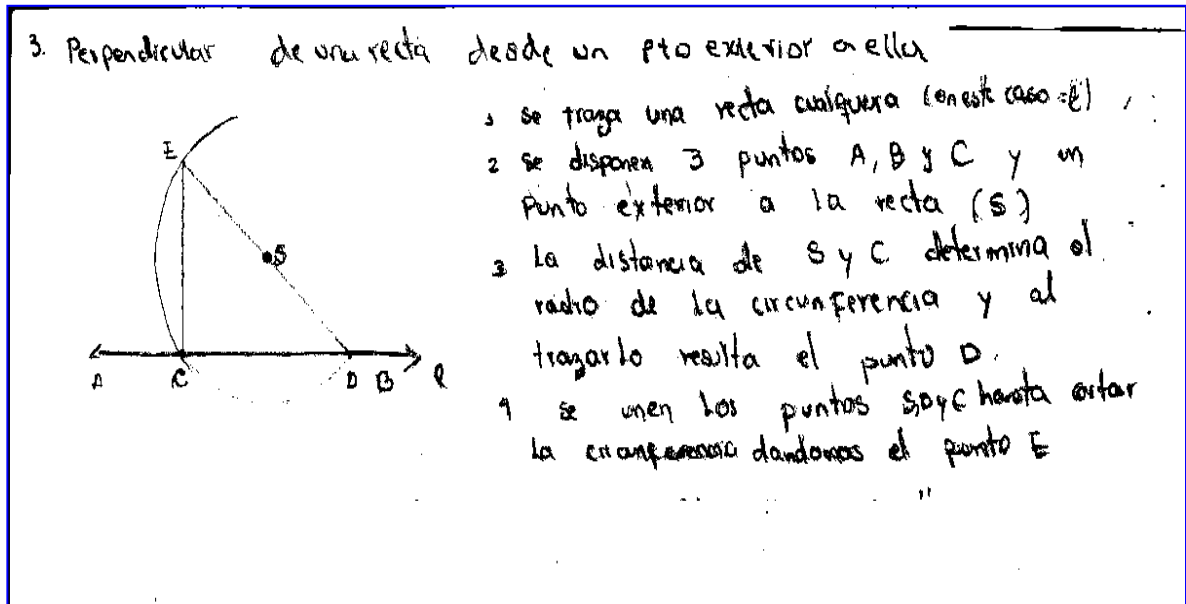 3. Perpendicular de una recta desde un pto exterior a ella
1 se traza una recta cualquera (en este caso = l)
2 se disponen 3 puntos A, B y C y un
punto exterior a la recta (S)
3 La distancia de S y C determina el
radio de la circunferencia y al
trazarlo resulta el punto D.
4 se unen los puntos S, D y C hasta cortar
la circunferencia dandonos el punto E
E
S
A C D B l